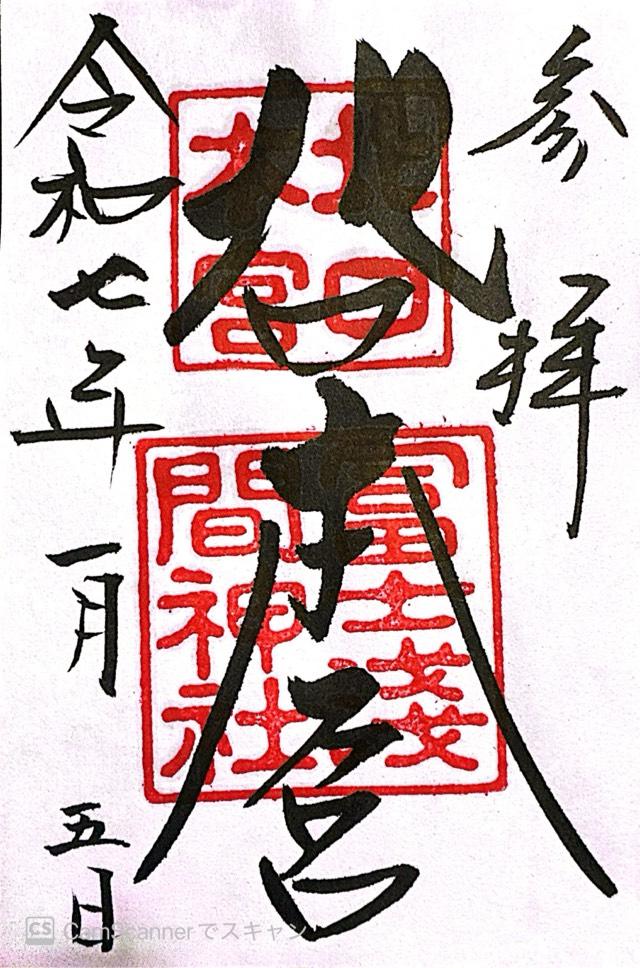 参拝
北口本宮
北口
本宮
冨士淺
間神社
令和七年一月五日
CS CamScannerでスキャン